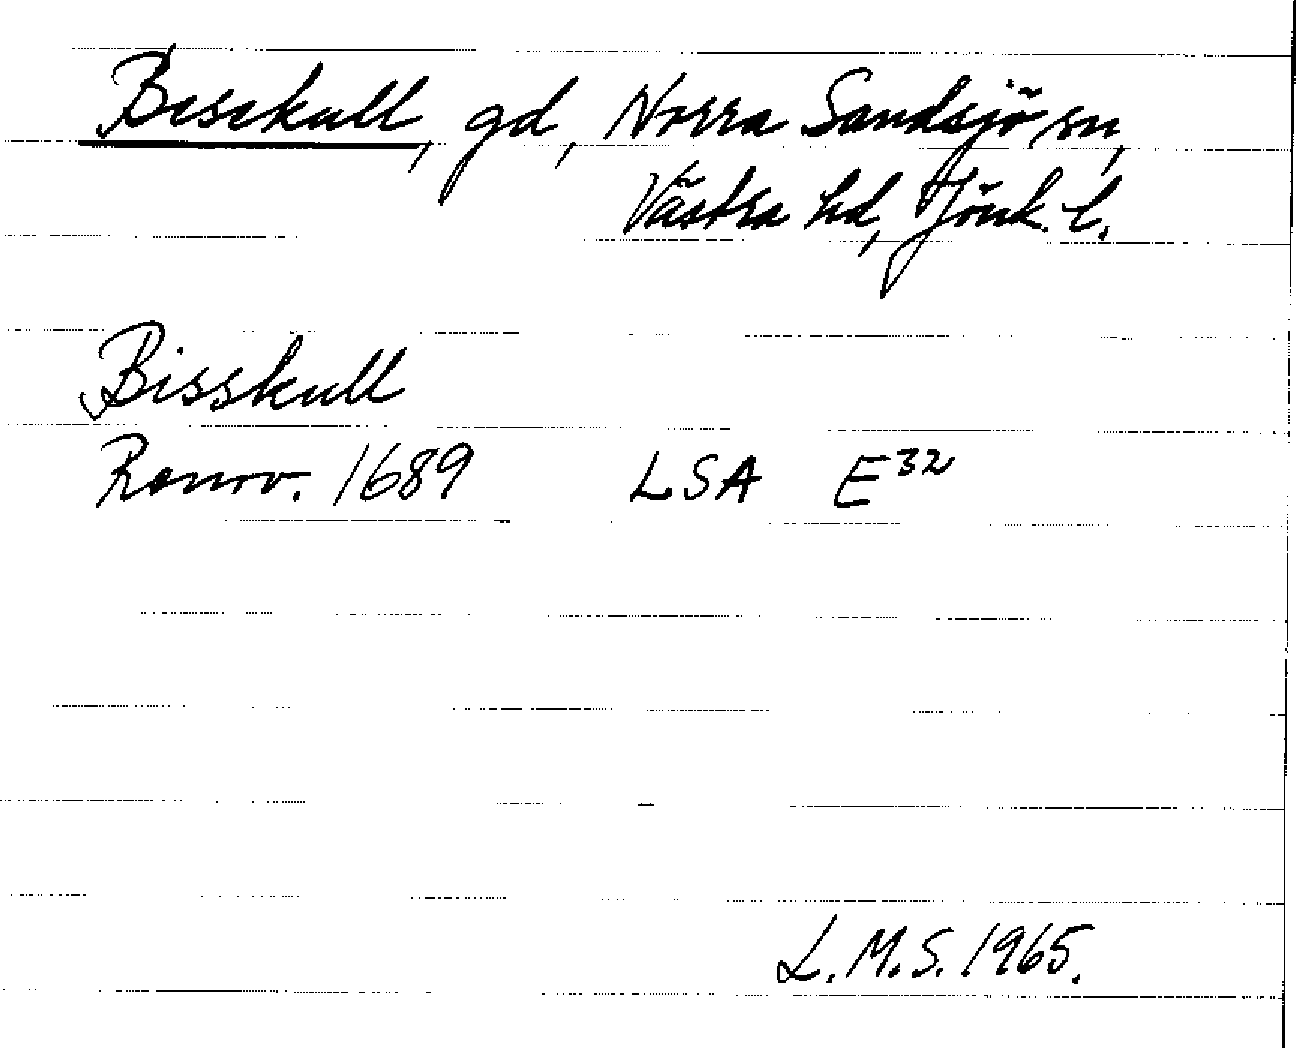 Bisskull, gd, Norra Sandsjö sn,
Västra hd, Jönk. l.
Bisskull
Ranrov. 1689 LSA E32
L.M.S. 1965.